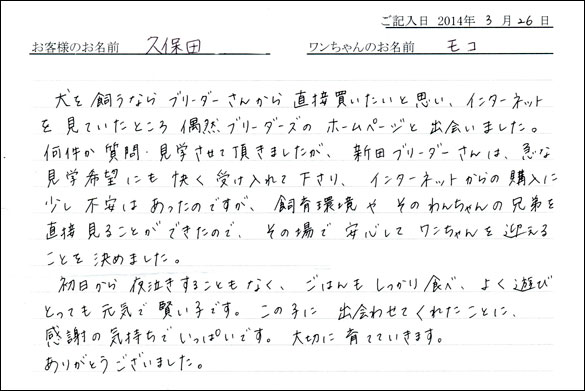 ご記入日 2014年 3 月 26 日
お客様のお名前 久保田 ワンちゃんのお名前 モコ
犬を飼うなら ブリーダーさんから 直接買いたいと思い、インターネット
を見ていたところ 偶然ブリーダーズの ホームページと出会いました。
何件か質問・見学させて頂きましたが、新田ブリーダーさんは、急な
見学希望にも 快く受け入れて下さり、インターネットからの購入に
少し不安は あったのですが、飼育環境や そのわんちゃんの兄弟を
直接見ることができたので、その場で安心して ワンちゃんを迎える
ことを決めました。
初日から 夜泣きすることもなく、ごはんもしっかり食べ、よく遊び
とっても元気で賢い子です。この子に 出会わせてくれたことに、
感謝の気持ちでいっぱいです。大切に育てていきます。
ありがとうございました。